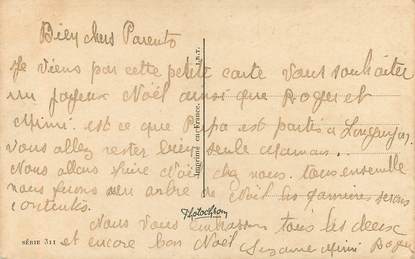 Bien chers Parents
Je viens par cette petite carte vous souhaiter
un joyeux Noël ainsi que Roger et
Mimi. est ce que Papa est partis a
vous allez rester bien seule Maman..
Nous allons faire Noël chez nous. tous ensemble
nous ferons un arbre de Noël les gamines serons
contentes.
Nous vous embrassons tous les deux
et encore bon Noël Suzanne Mimi Roger
I.N.T.
Imprimé en France.
Photochrom
SÉRIE 311